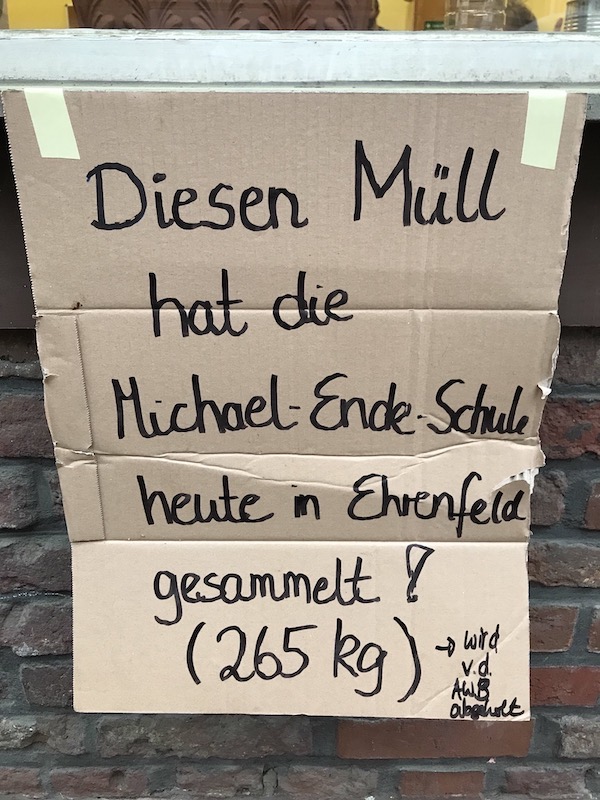 Diesen Müll
hat die
Michael-Ende-Schule
heute in Ehrenfeld
gesammelt!
(265 kg)
→ wird
v.d.
AWB
abgeholt